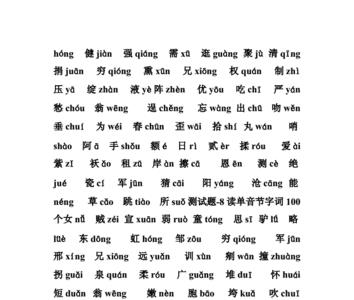 hóng 健 jiàn 强 qiáng 需 xū 逛 guàng 聚 jù 清 qīng
捐 juān 穷 qióng 熏 xūn 兄 xiōng 权 quán 制 zhì
压 yā 绽 zhàn 液 yè 阵 zhèn 优 yōu 吃 chī 严 yán
愁 chóu 翁 wēng 逞 chěng 忘 wàng 出 chū 吻 wěn
垂 chuí 为 wéi 春 chūn 歪 wāi 拾 shí 丸 wán 哨
shào 阿 ā 手 shǒu 额 é 日 rì 贰 èr 揉 róu 爱 ài
紫 zǐ 袄 ǎo 租 zū 岸 àn 擦 cā 恩 ēn 测 cè 绝
jué 瓷 cí 军 jūn 猜 cāi 阳 yáng 沧 cāng 能
néng 草 cǎo 跳 tiào 所 suǒ 测试题-8 读单音节字词 100
个女 nǚ 贼 zéi 宣 xuān 弱 ruò 童 tóng 思 sī 驴 lǘ 略
lüè 东 dōng 虹 hóng 邹 zōu 穷 qióng 军 jūn
邢 xíng 兄 xiōng 远 yuǎn 训 xùn 剜 wān 撞 zhuàng
拐 guǎi 泉 quán 柔 róu 广 guǎng 堆 duī 怀 huái
短 duǎn 翁 wēng 嫩 nèn 胞 bāo 垮 kuǎ 吹 chuī